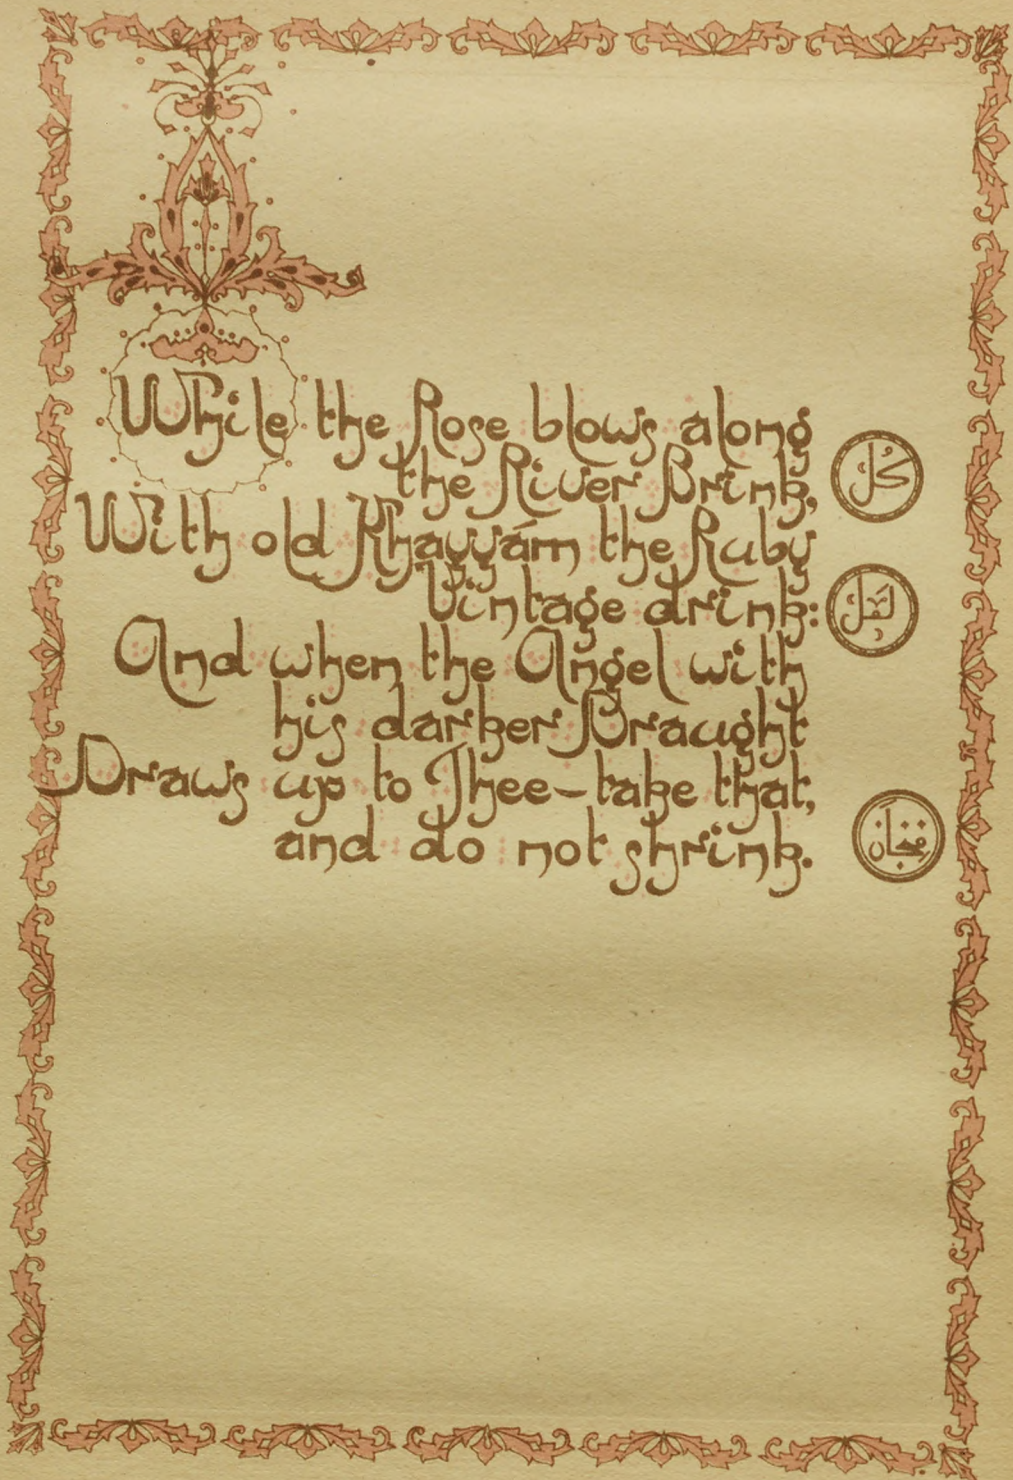 While the Rose blows along
the River Brink,
گل
With old Khayyám the Ruby
Vintage drink:
لعل
And when the Angel with
his darker Draught
Draws up to Thee—take that,
and do not shrink.
فنجان